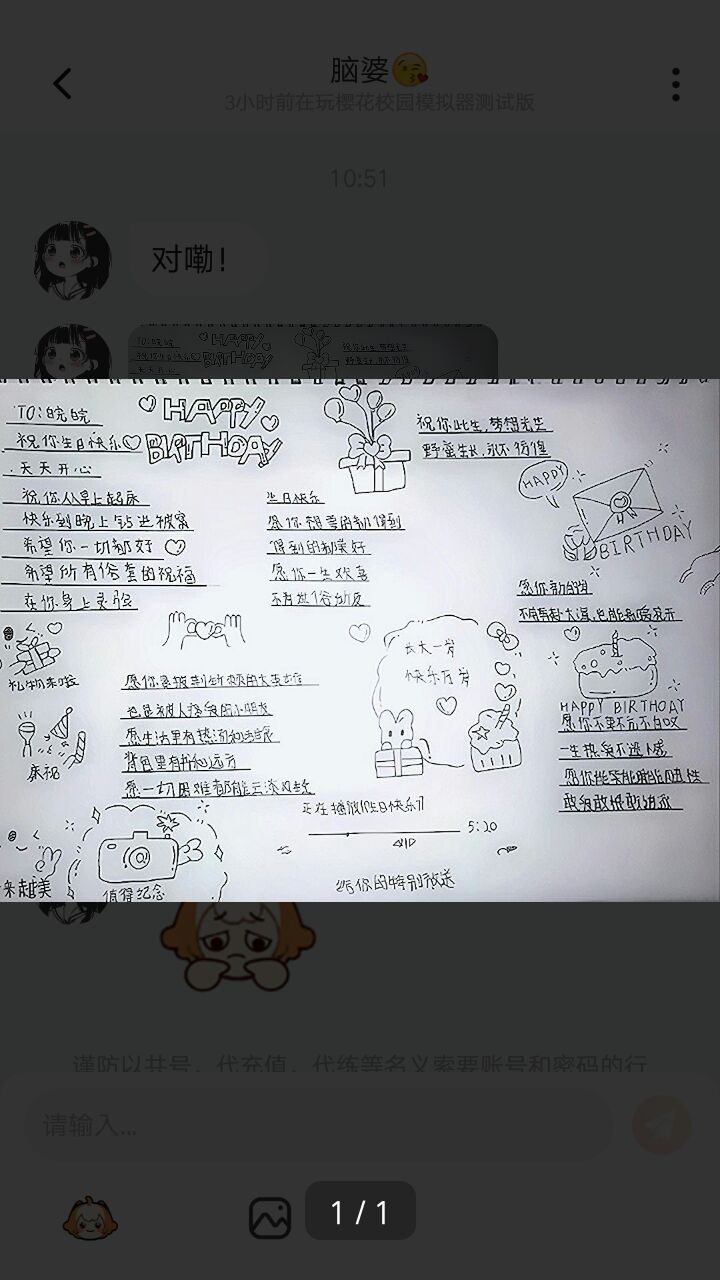 脑婆😘
3小时前在玩樱花校园模拟器测试版
10:51
对嘞！
TO:晓晓
祝你生日快乐♡
天天开心
祝你从早上起床
快乐到晚上钻进被窝
希望你一切都好♡
希望所有俗套的祝福
在你身上灵验
HAPPY
BIRTHDAY
生日快乐
愿你想要的都得到
得到的都美好
愿你一生欢喜
不为世俗所及
祝你此生,梦想光芒
野蛮生长,永不彷徨
HAPPY
BIRTHDAY
愿你新的
不负
大
也能
礼物来啦
庆祝
愿你是披
的大
也是被人
的小朋友
愿生活里有热
背包里有
和远方
愿一切困难都能
长大一岁
快乐万岁
HAPPY BIRTHDAY
愿你不卑不亢不自叹
一生热爱不遗憾
愿你
敢
正在播放《生日快乐》
5:20
给你的特别放送
来越美
值得纪念
谨防以共号、代充值、代练等名义索要账号和密码的行
请输入...
1 / 1